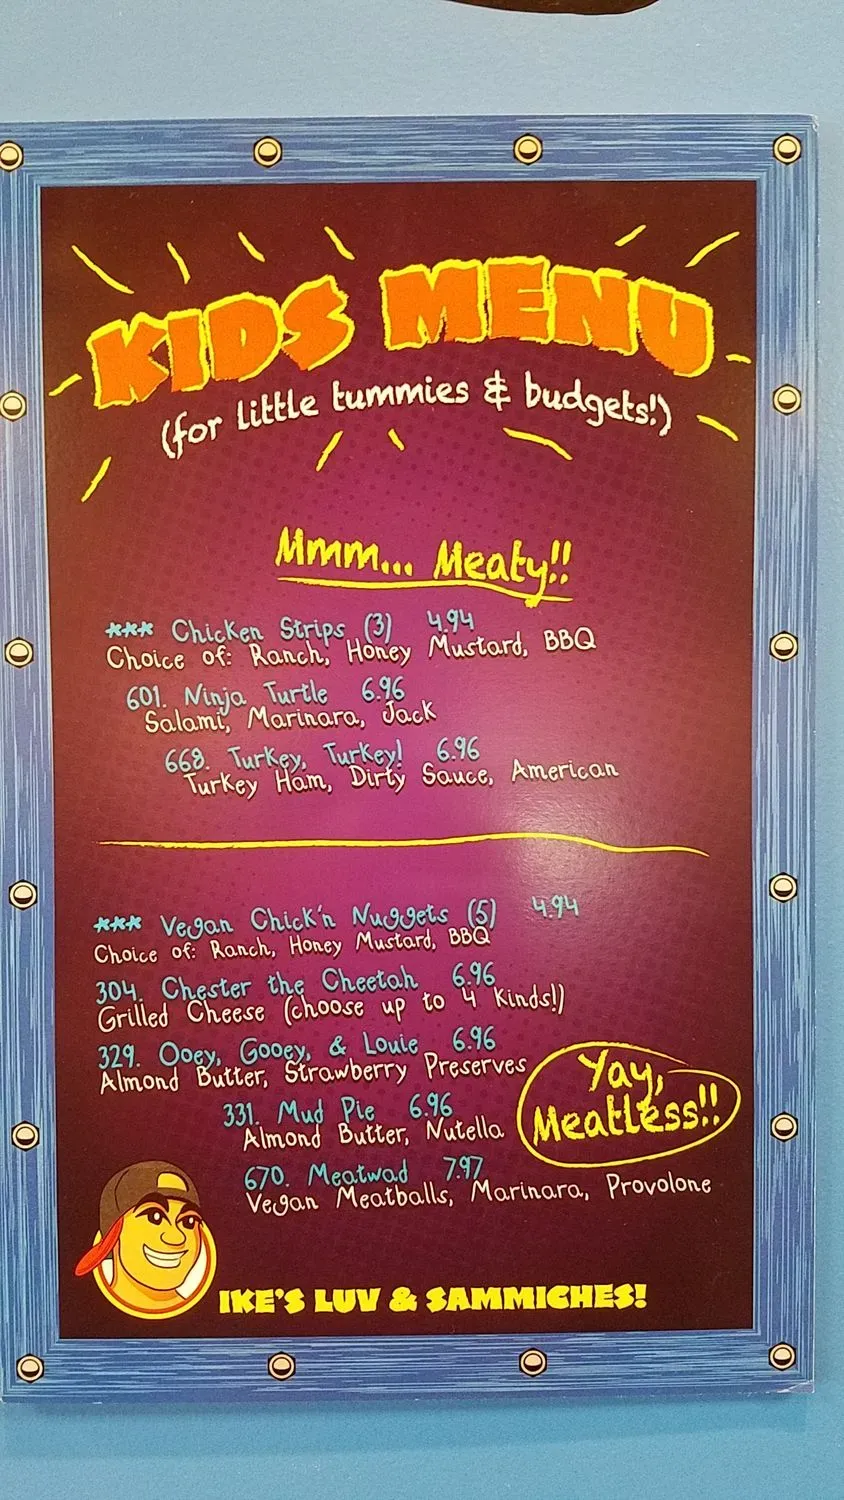 KIDS MENU
(for little tummies & budgets!)
Mmm... Meaty!!
*** Chicken Strips (3) 4.94
Choice of: Ranch, Honey Mustard, BBQ
601. Ninja Turtle 6.96
Salami, Marinara, Jack
668. Turkey, Turkey! 6.96
Turkey Ham, Dirty Sauce, American
*** Vegan Chick'n Nuggets (5) 4.94
Choice of: Ranch, Honey Mustard, BBQ
304. Chester the Cheetah 6.96
Grilled Cheese (choose up to 4 kinds!)
329. Ooey, Gooey, & Louie 6.96
Almond Butter, Strawberry Preserves
331. Mud Pie 6.96
Almond Butter, Nutella
Yay,
Meatless!!
670. Meatwad 7.97
Vegan Meatballs, Marinara, Provolone
IKE'S LUV & SAMMICHES!